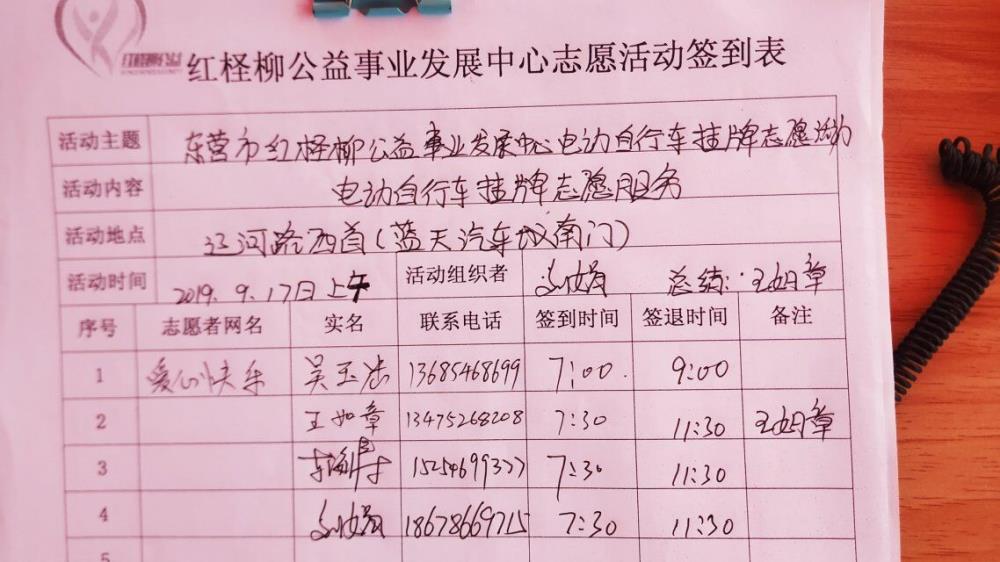 红柽柳公益事业发展中心志愿活动签到表
活动主题 东营市红柽柳公益事业发展中心电动自行车挂牌志愿活动
活动内容 电动自行车挂牌志愿服务
活动地点 辽河路西首(蓝天汽车城南门)
活动时间 2019.9.17日上午 活动组织者 总结:
序号 志愿者网名 实名 联系电话 签到时间 签退时间 备注
1 爱心快乐 吴玉 13685468699 7:00 9:00
2 王如章 13475268208 7:30 11:30
3 15254699377 7:30 11:30
4 18678669715 7:30 11:30
5